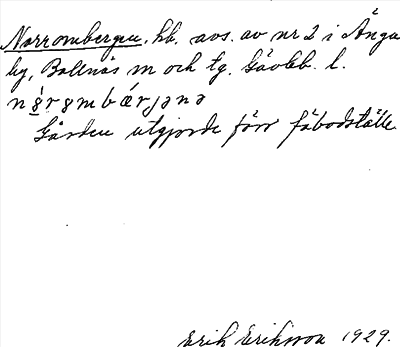 Norrombergen, hb. avs. av nr 2 i Änga
by, Bollnäs sn och tg. Gävleb. l.
Gården utgjorde förr fäbodställe
Erik Eriksson 1929.